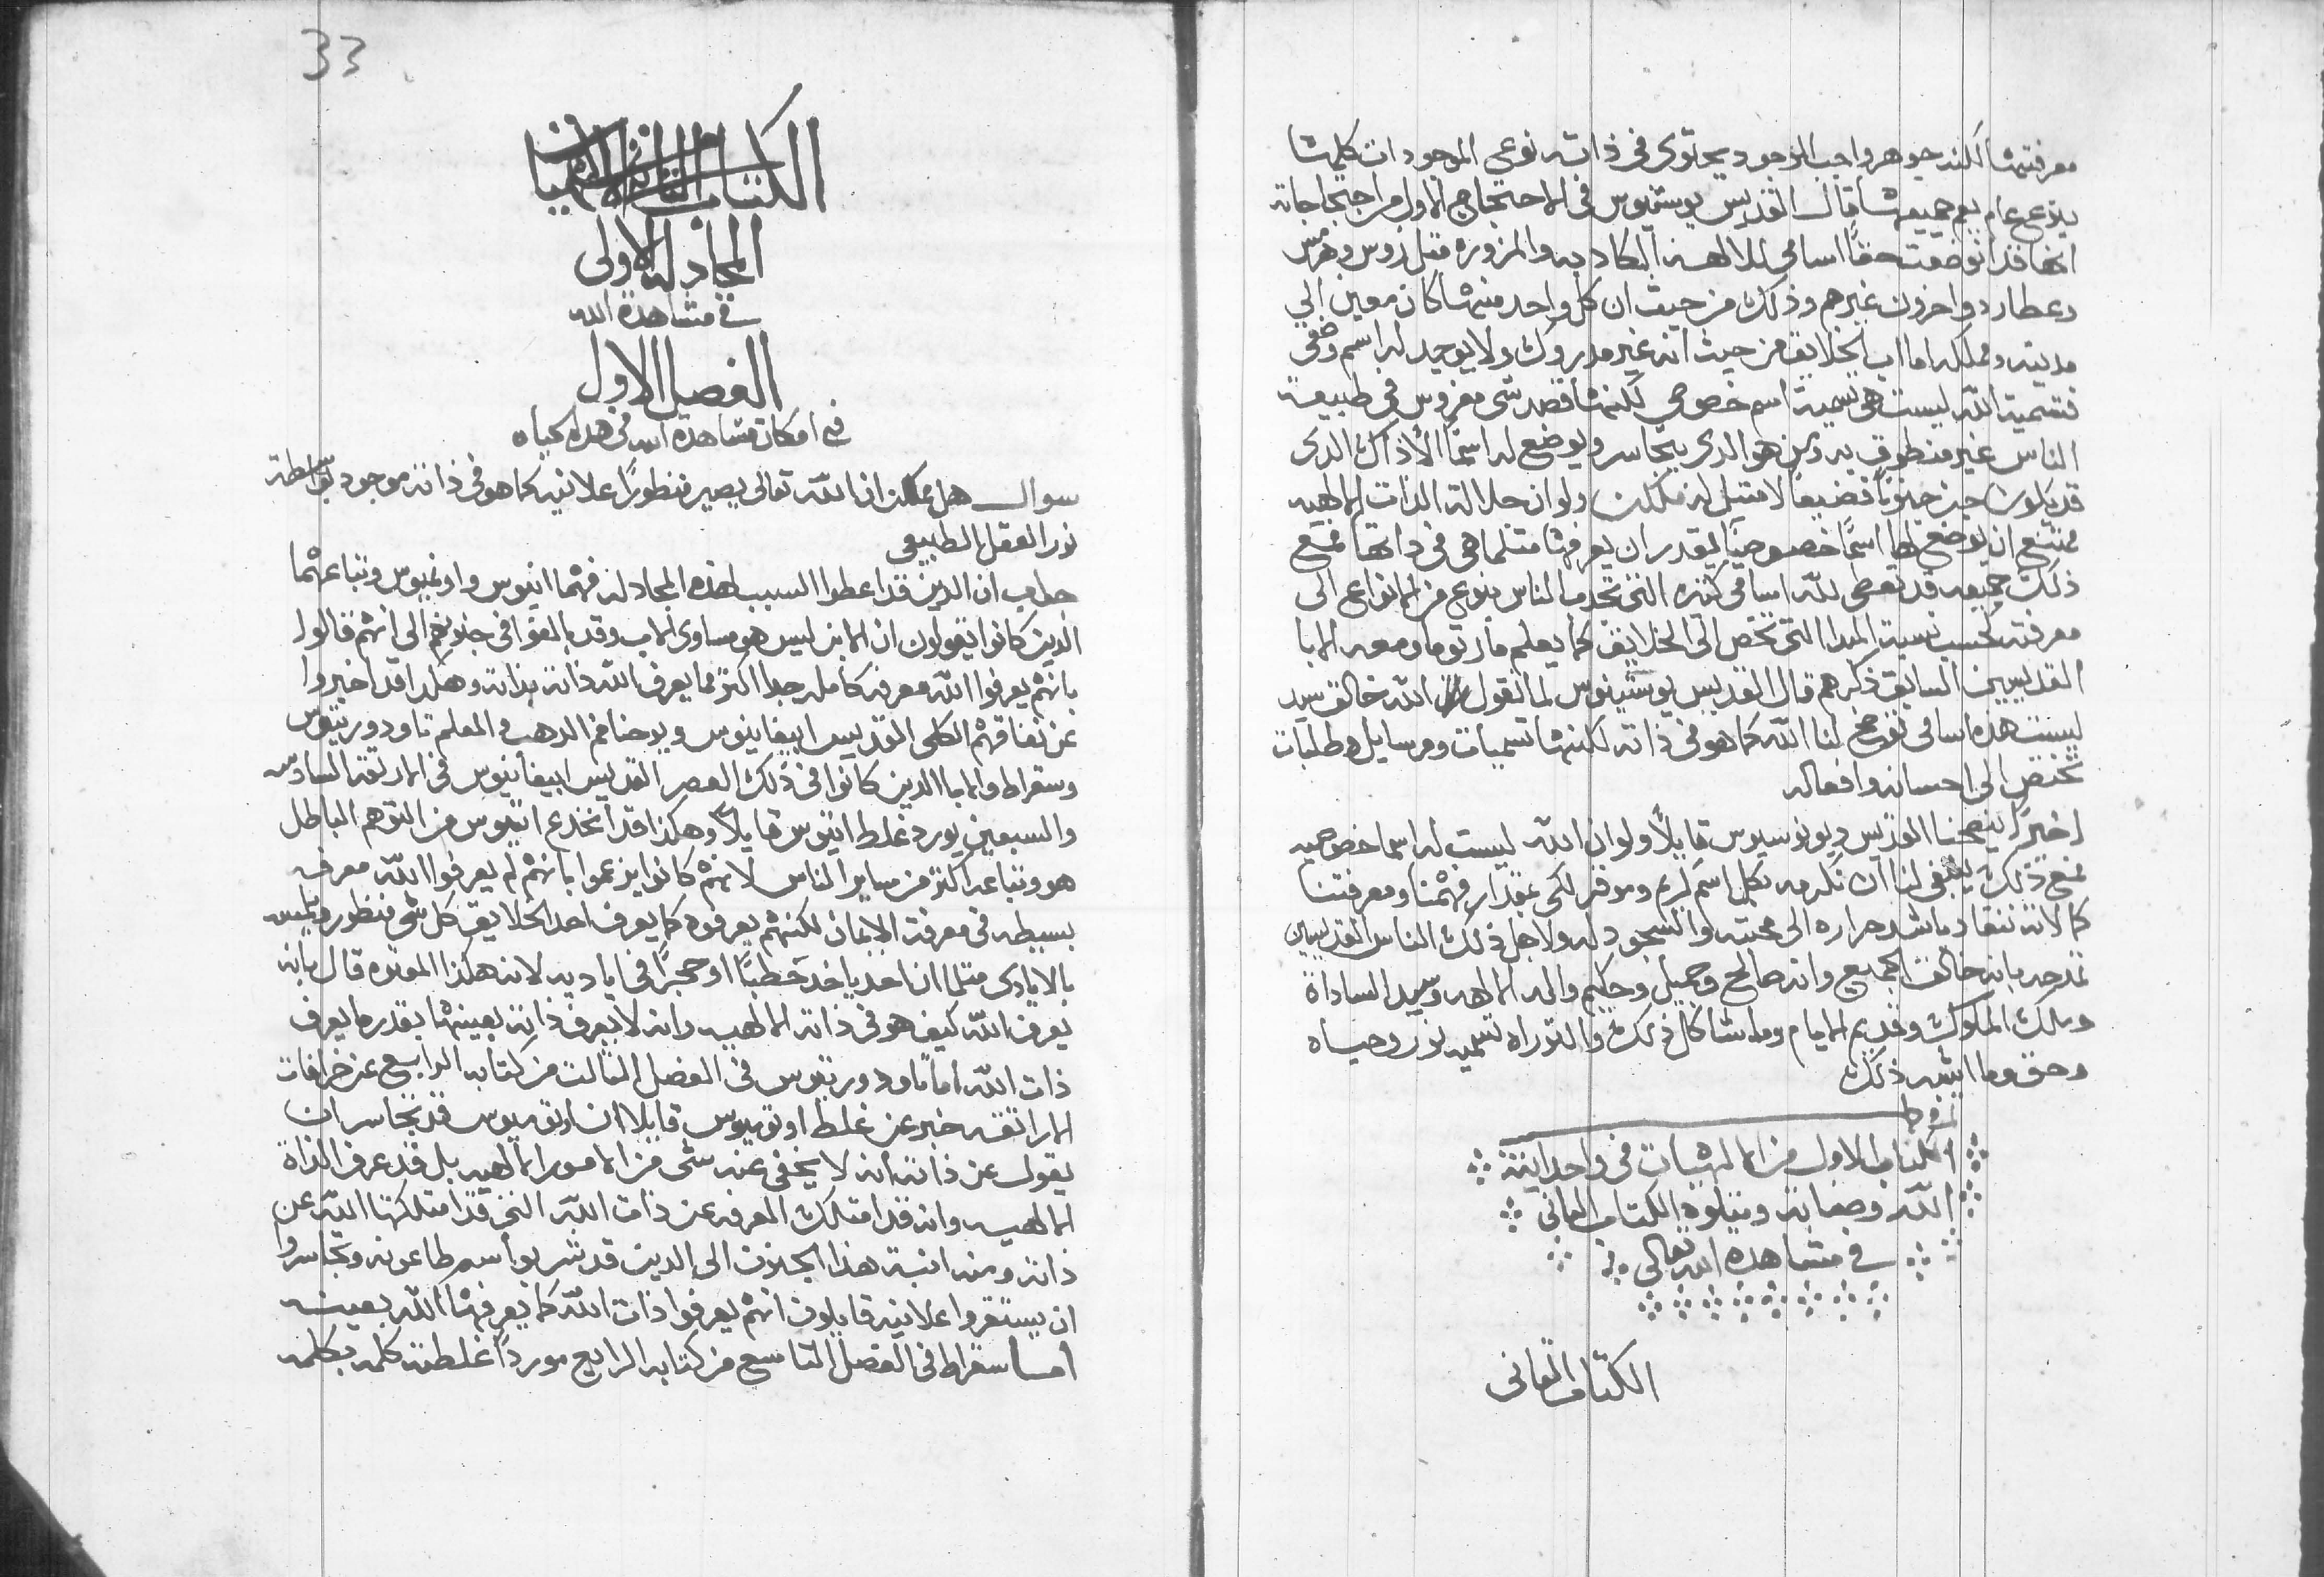 معرفتها لكنه جوهر واجب الوجود يحتوي في ذاته نوعي الموجودات كلها
بنوع عام يعم جميعها قال القديس يوستينوس في الاحتجاج الاول من احتجاجاته
انها قد انوضعت حقًا اسامي للالهه الكادبه والمزوره مثل زوس وهرمس
وعطارد واخرون غيرهم وذلك من حيث ان كل واحد منها كان معين الي
مدينه ومملكه اما اب الخلايق من حيث انه غير مدروك ولا يوجد له اسم وضعي
فتسمية الله ليست هي تسمية اسم خصوصي لكنها قصد شي مغروس في طبيعة
الناس غير منطوق به ومن هو الدي يتجاسر ويوضع له اسمًا الا ذاك الدي
قد يكون جن جنونًا فضيعًا لا مثيل له ممكن ولو ان جلالة الذات الالهيه
ممتنع ان يوضع لها اسمًا خصوصيًا ليقدر ان يعرفها مثلما هي في داتها فمع
ذلك جميعه قد تعطى لله اسامي كثيره التي تجدب الناس بنوع من الانواع الى
معرفته بحسب نسبة المبدا التي تختص الى الخلايق كما يعلم مار توما ومعه الابا
القديسين السابق ذكرهم قال القديس يوستينوس لما نقول الله خالق سيد
ليست هذه اسامي توضح لنا الله كما هو في ذاته لكنها تسميات ومرسايل وطلبات
تختص الى احسانه وافعاله
اخيرًا ينصحنا القديس ديونوسيوس قايلًا ولو ان الله ليست له اسما خصوصيه
فمع ذلك ينبغي لنا ان نكرمه بكل اسم كريم وموقر لكي بمقدار فهمنا ومعرفتنا
كمالاته ننقاد باشد حراره الى محبته والسجود له ولاجل ذلك الناس القديسين
تمدحه بانه خالق الجميع وانه صالح وجميل وحكيم واله الالهه وسيد الساداة
وملك الملوك وقديم الايام وما شاكل ذلك والتوراه تسميه نور وحياه
وحق وما اشبه ذلك
الكتاب الاول من الالهيات في واحدانية
الله وصفاته ويتلوه الكتاب الثاني
في مشاهدة الله تعالى
الكتاب الثاني
33
الكتاب الثاني من الالهيات
المجادله الاولى
في مشاهدة الله
الفصل الاول
في امكان مشاهدة الله في هذه الحياه
سوال هل يمكن ان الله تعالى يصير منظورًا علانيه كما هو في ذاته موجود بواسطة
نور العقل الطبيعي
جواب ان الدين قد اعطوا السبب لهذه المجادله فهما اتيوس واونميوس وتباعهما
الدين كانوا يقولون ان الابن ليس هو مساوي الاب وقد بالغوا في جنونهم الى انهم قالوا
بانهم يعرفوا الله معرفه كامله جدا اكتر مما يعرف الله ذاته بذاته وهكدا قد اخبروا
عن نفاقهم الكلي القديس ابيفانيوس ويوحنا فم الدهب والمعلم تاودوريتوس
وسقراط والابا الدين كانوا في ذلك العصر القديس ابيفانيوس في الارتقه السادس
والسبعين يورد غلط اتيوس قايلًا وهكذا قد انخدع اتيوس من التوهم الباطل
هو وتباعه اكتر من ساير الناس لانهم كانوا يزعموا بانهم لم يعرفوا الله معرفه
بسيطه في معرفة الايمان لكنهم يعرفوه كما يعرف احد الخلايق كل شي منظور ويلمسه
بالايادي متلما ان احد ياخد حطبًا او حجرًا في اياديه لانه هكذا المعتره قال بانه
يعرف الله كيف هو في ذاته الالهيه وانه لا يعرف ذاته بعينها بقدر ما يعرف
ذات الله اما تاودوريتوس في الفصل التالت من كتابه الرابع عن خرافات
الاراتقه خبر عن غلط اونوميوس قايلا ان اونوميوس قد تجاسر ان
يقول عن ذاته انه لا يخفى عنه شي من الامور الالهيه بل قد عرف الذاة
الالهيه وانه قد امتلك المعرفه عن ذات الله التي قد امتلكها الله عن
ذاته ومنه انتبة هذا الجنون الى الدين قد شربوا سم طاعونه وتجاسروا
ان يستقروا علانيه قايلون انهم يعرفوا ذات الله كما يعرفها الله بعينه
اما سقراط في الفصل التاسع من كتابه الرابع موردًا غلطته كلمه بكلمه